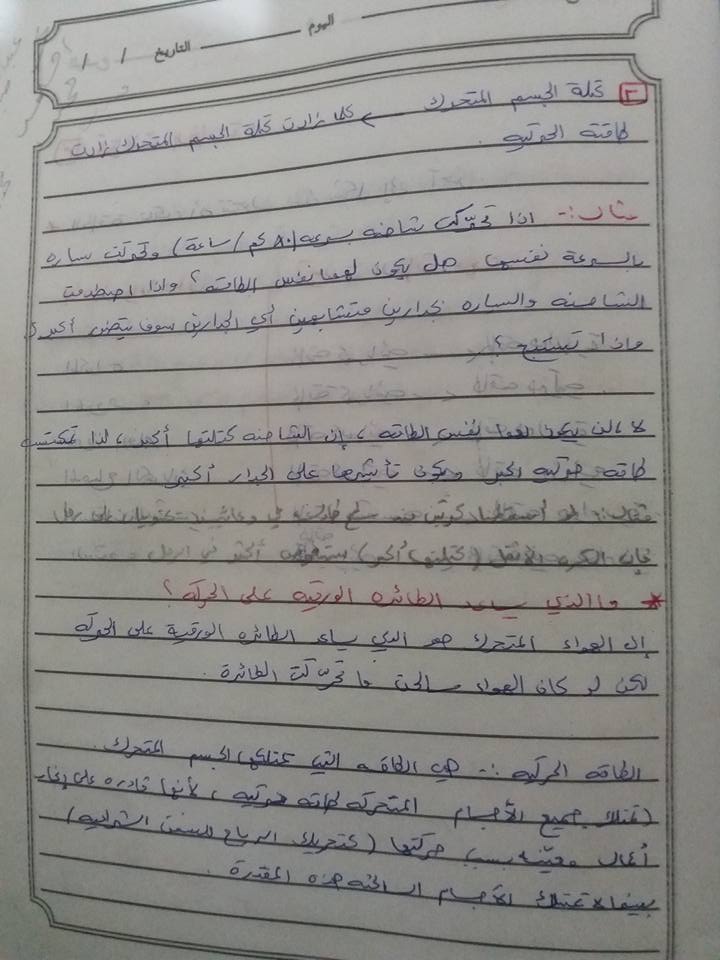 اليوم ــــــــ التاريخ / /
٢ كتلة الجسم المتحرك ← كلما زادت كتلة الجسم المتحرك زادت
طاقته الحركيه .
مثال :- اذا تحركت شاحنه بسرعه (٨٠ كم / ساعة) وتحركت ساره
بالسرعة نفسها، هل يكون لهما نفس الطاقه ؟ واذا اصطدمت
الشاحنه والسياره بجدارين متشابهين أي الجدارين سوف يتضرر أكثر ؟
وماذا تستنتج ؟
لا، لن يكون لهما نفس الطاقه ، إن الشاحنه كتلتها أكبر ، لذا تمتلك
طاقه حركيه أكبر ويكون تأثيرها على الجدار أكبر
مثال : لو على رمل
فإن الكره الأثقل (كتلتها أكبر) أكثر في الرمل
* ما الذي يساعد الطائره الورقيه على الحركه ؟
إن الهواء المتحرك هو الذي يساعد الطائره الورقية على الحركه
لكن لو كان الهواء ساكن ما تحركت الطائرة .
الطاقه الحركيه :- هي الطاقه التي يمتلكها الجسم المتحرك .
(تمتلك جميع الأجسام المتحركه طاقه حركيه ، لأنها قادره على إنجاز
أعمال معينه بسبب حركتها (كتحريك الرياح للسفن الشراعيه)
بينما لا تمتلك الأجسام الساكنه هذه المقدرة .